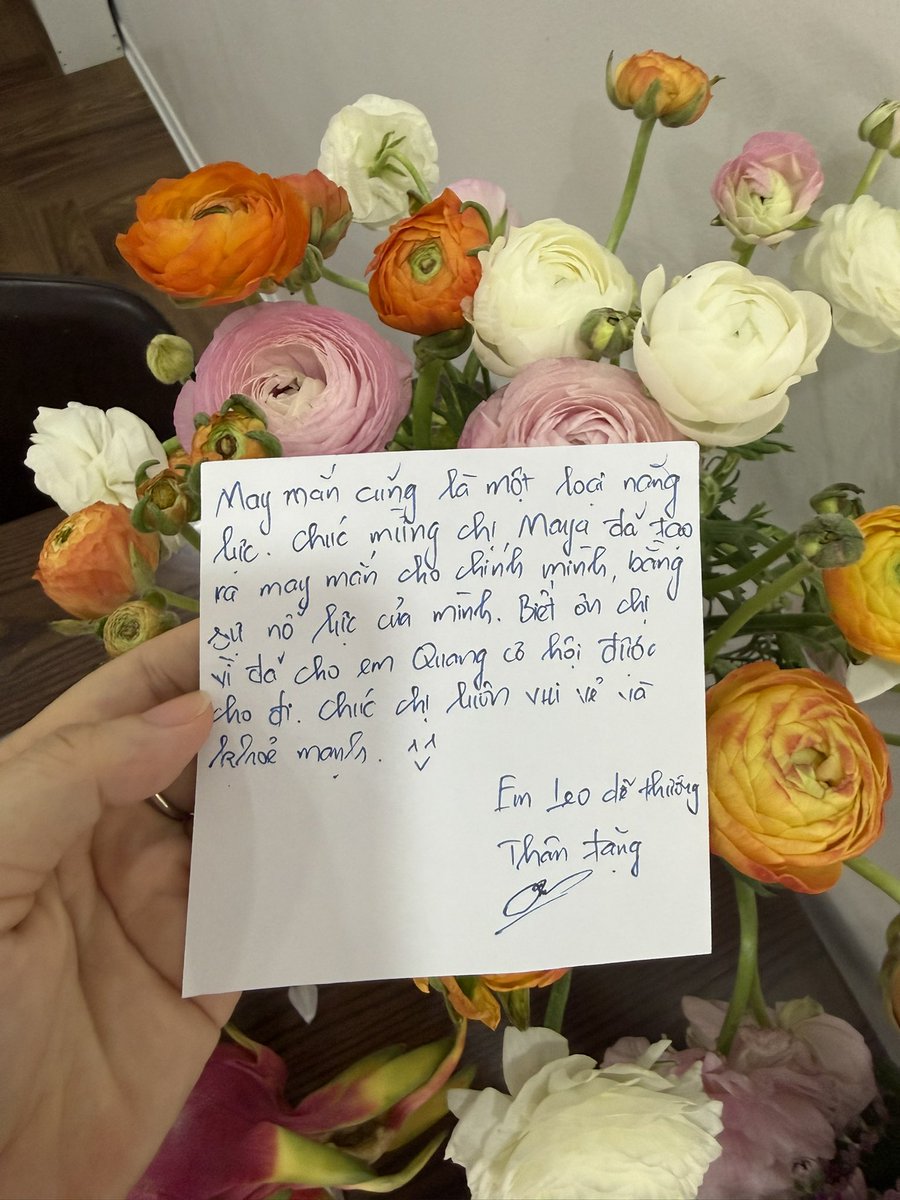 May mắn cũng là một loại năng
lực. Chúc mừng chị Maya đã tạo
ra may mắn cho chính mình, bằng
sự nỗ lực của mình. Biết ơn chị
vì đã cho em Quang có hội được
cho đi. Chúc chị luôn vui vẻ và
khoẻ mạnh. ^^
Em Leo dễ thương
Thân tặng